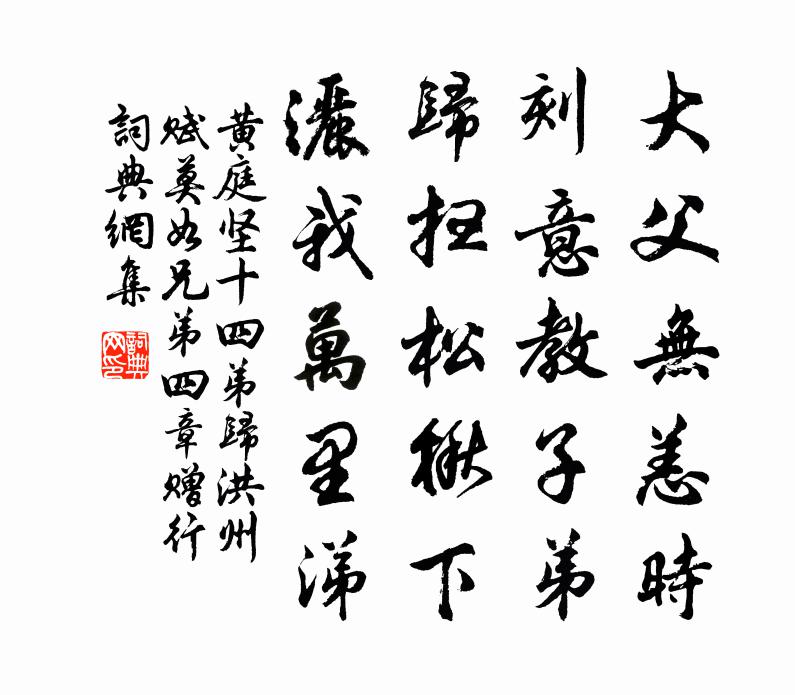 大父無恙時
刻意教子弟
歸扫松楸下
灑我萬里涕
黄庭坚十四弟歸洪州
赋莫如兄弟四章赠行
詞典網集
詞典网印